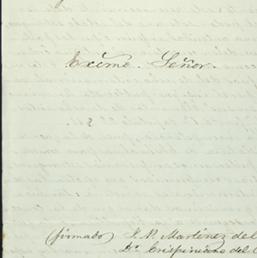 Excmo. Señor.
(firmado) J. N. Martinez del
Dr. Crispiniano del